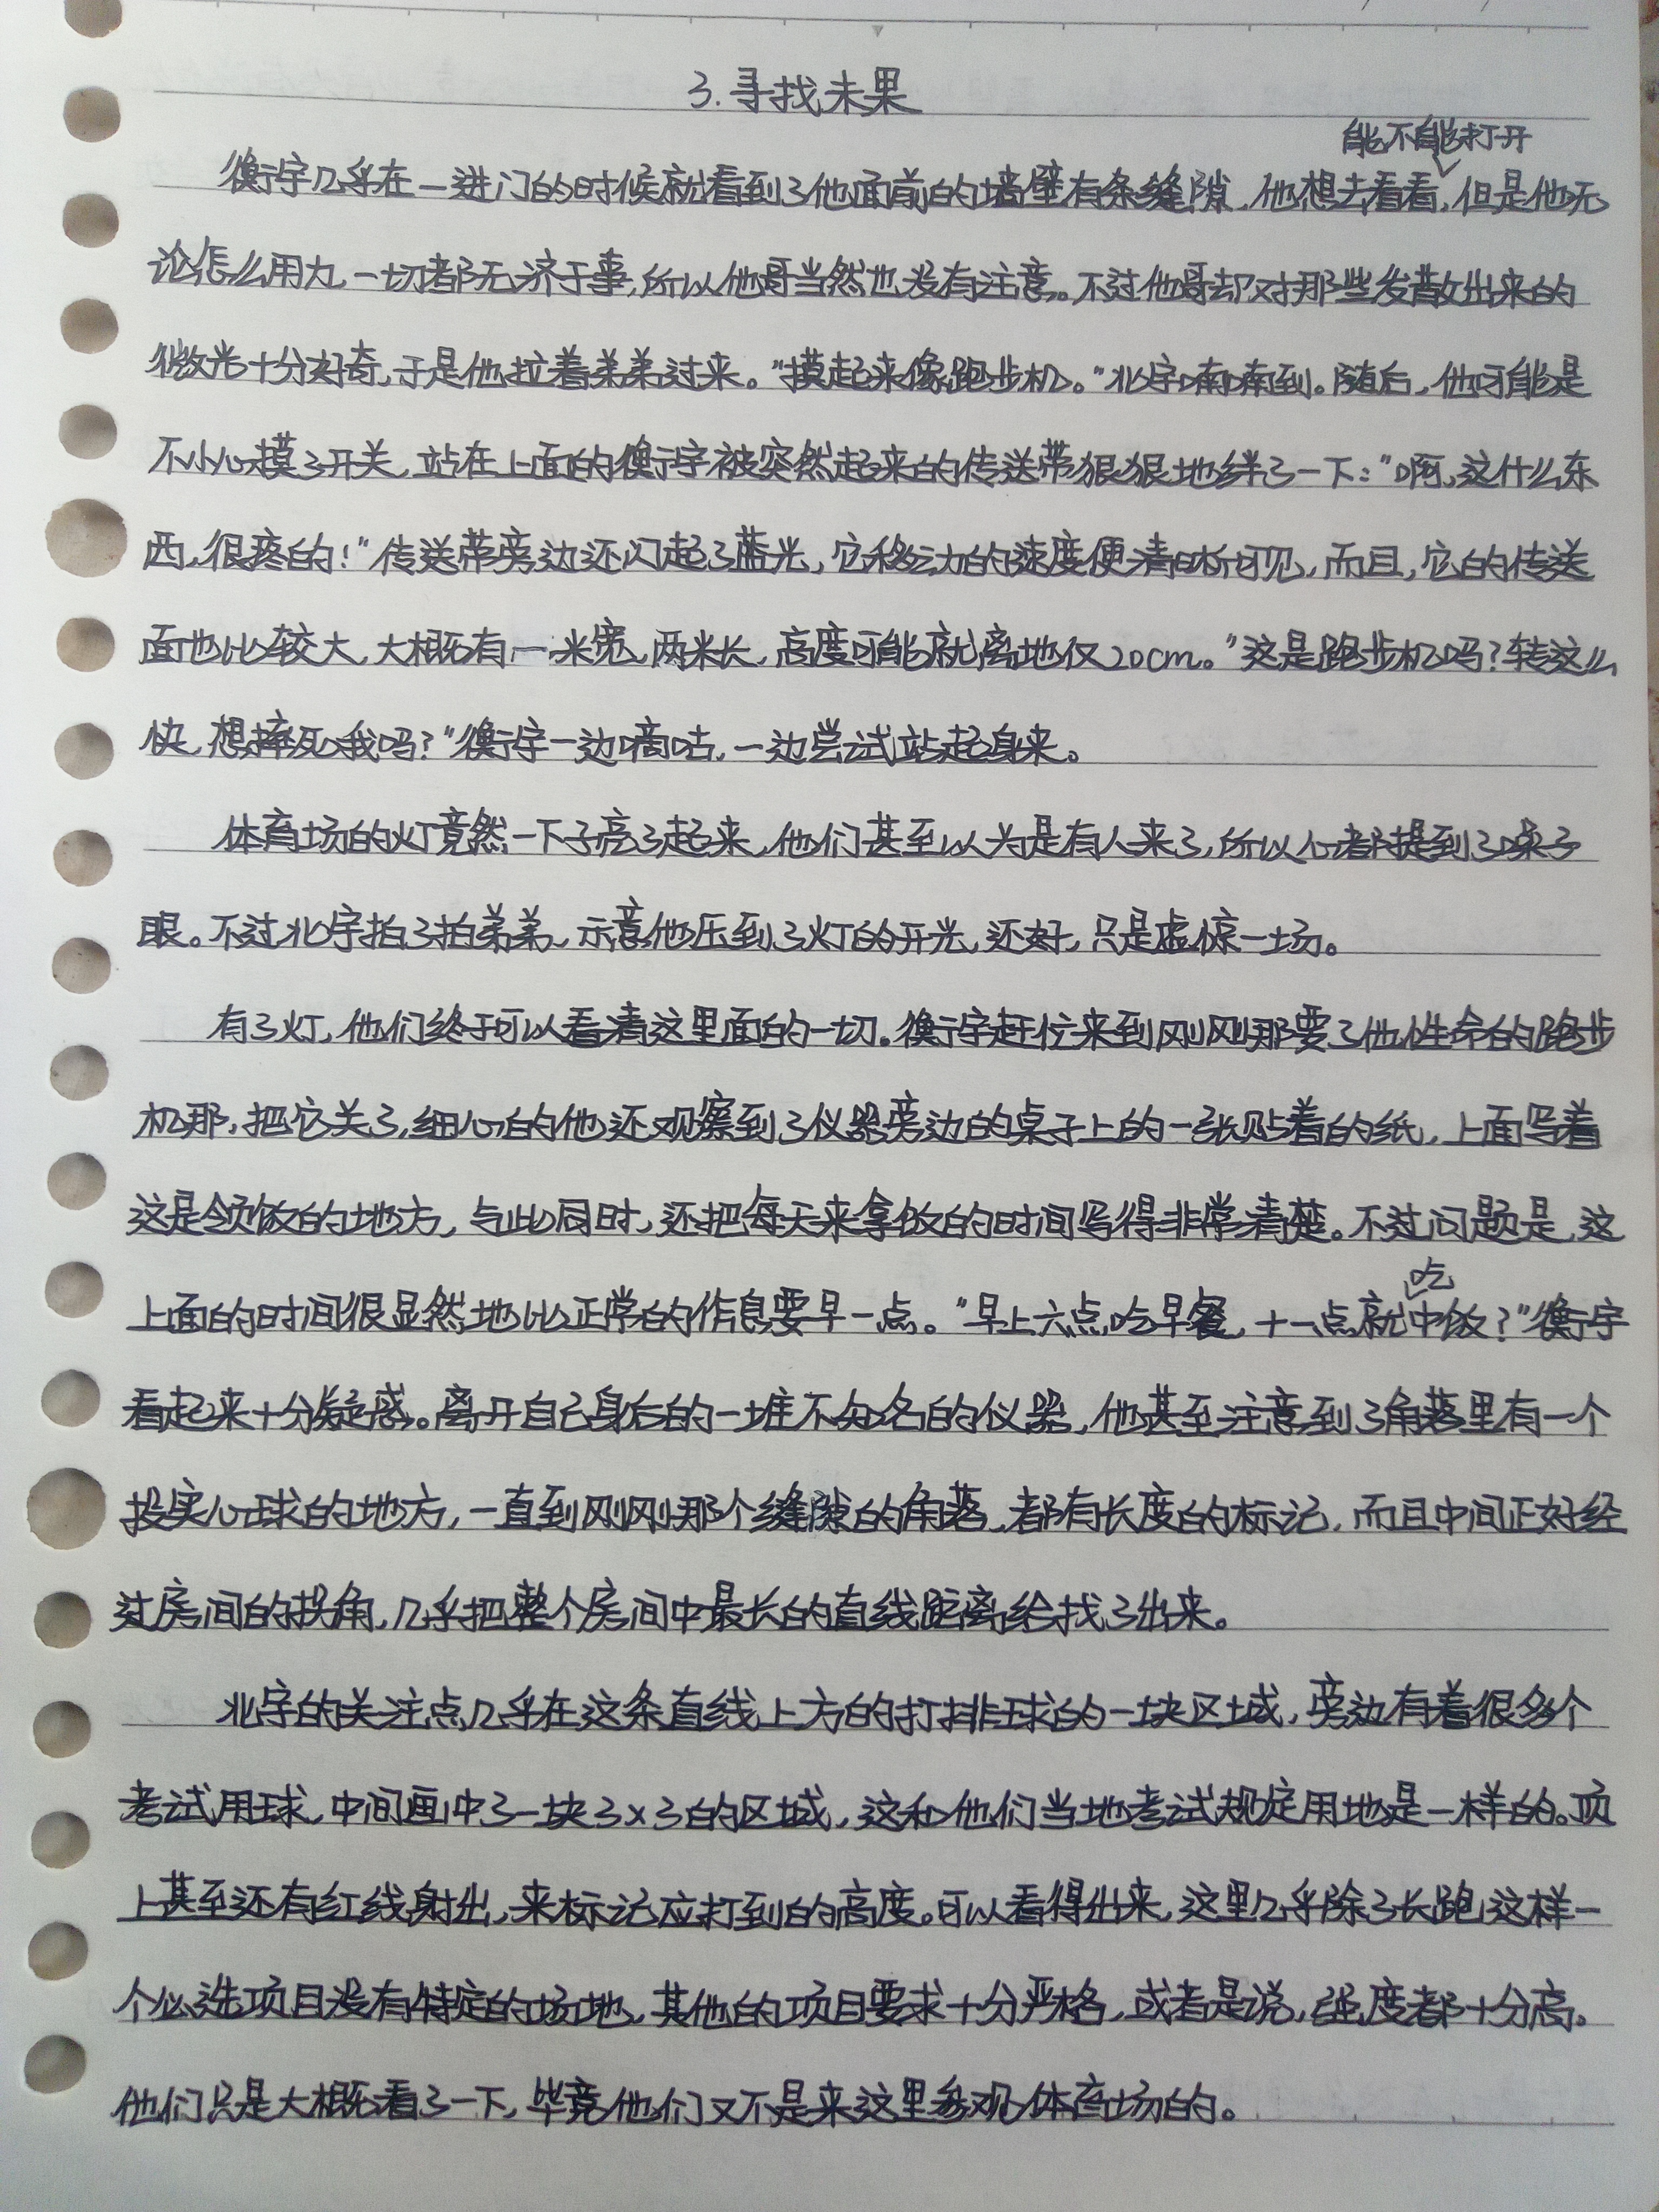 3.寻找未果
能不能打开
衡宇几乎在一进门的时候就看到了他面前的墙壁有条缝隙,他想去看看,但是他无
论怎么用力,一切都无济于事,所以他哥当然也没有注意。不过他哥却对那些发散出来的
微光十分好奇,于是他拉着弟弟过来。“摸起来像跑步机。”北宇喃喃到。随后,他可能是
不小心摸了开关,站在上面的衡宇被突然起来的传送带狠狠地绊了一下:“啊,这什么东
西,很疼的!”传送带旁边还闪起了蓝光,它移动的速度便清晰可见,而且,它的传送
面也比较大,大概有一米宽,两米长,高度可能就离地仅20cm。“这是跑步机吗?转这么
快,想摔死我吗?”衡宇一边嘀咕,一边尝试站起身来。
体育场的灯竟然一下子亮了起来,他们甚至以为是有人来了,所以心都提到了嗓子
眼。不过北宇拍了拍弟弟,示意他压到了灯的开光,还好,只是虚惊一场。
有了灯,他们终于可以看清这里面的一切。衡宇赶忙来到刚刚那要了他性命的跑步
机那,把它关了,细心的他还观察到了仪器旁边的桌子上的一张贴着的纸,上面写着
这是领饭的地方,与此同时,还把每天来拿饭的时间写得非常清楚。不过问题是,这
吃
上面的时间很显然地比正常的作息要早一点。“早上六点吃早餐,十一点就中饭?”衡宇
看起来十分疑惑。离开自己身后的一堆不知名的仪器,他甚至注意到了角落里有一个
投实心球的地方,一直到刚刚那个缝隙的角落,都有长度的标记,而且中间正好经
过房间的拐角,几乎把整个房间中最长的直线距离给找了出来。
北宇的关注点几乎在这条直线上方的打排球的一块区域,旁边有着很多个
考试用球,中间画中了一块3×3的区域,这和他们当地考试规定用地是一样的。顶
上甚至还有红线射出,来标记应打到的高度。可以看得出来,这里几乎除了长跑这样一
个必选项目没有特定的场地,其他的项目要求十分严格,或者是说,强度都十分高。
他们只是大概看了一下,毕竟他们又不是来这里参观体育场的。